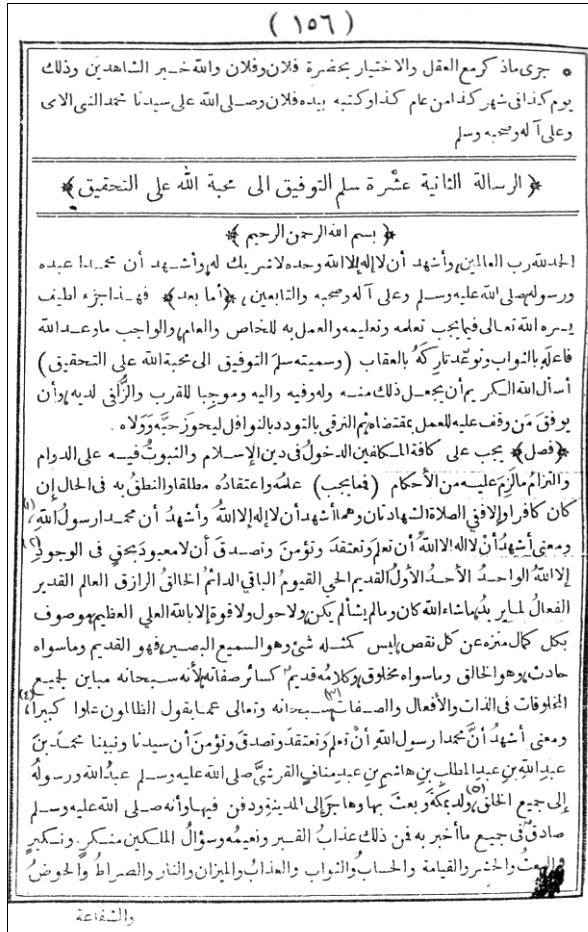 ( ١٥٦ )
* جرى ماذكر مع العقل والاختيار بحضرة فلان وفلان والله خير الشاهدين وذلك
يوم كذا فى شهر كذا من عام كذا وكتبه بيده فلان وصلى الله على سيدنا محمد النبى الامى
وعلى آله وصحبه وسلم
﴿ الرسالة الثانية عشْرة سلم التوفيق الى محبة الله على التحقيق ﴾
﴿ بسم الله الرحمن الرحيم ﴾
الحمدلله رب العالمين، وأشهد أن لا إله إلا الله وحده لاشريك له، وأشهد أن محمدا عبده
ورسوله، صلى الله عليه وسلم وعلى آله وصحبه والتابعين، ﴿أما بعد﴾ فهذا جزء لطيف
يسره الله تعالى فيما يجب تعلمه وتعليمه والعمل به للخاص والعام، والواجب ماوعد الله
فاعلَه بالثواب وتوعّد تاركَهُ بالعقاب (وسميته سلمَ التوفيق الى محبة الله على التحقيق)
أسأل الله الكريم أن يجعل ذلك منه وله وفيه واليه وموجبا للقرب والزُّلفى لديه، وأن
يوفقَ مَن وقف عليه للعمل بمقتضاه ثم الترقى بالتودد بالنوافل ليحوزَ حبَّه وَوَلاه.
﴿فصل﴾ يجب على كافة المكلفين الدخولُ فى دين الإسلام والثبوتُ فيه على الدوام
والتزامُ مالَزِمَ عليه من الأحكام (فمايجب) علمُه واعتقادُه مطلقا والنطقُ به فى الحال إن
كان كافرا وإلا ففى الصلاة الشهادتان وهما أشهد أن لا إله إلا اللهُ وأشهدُ أن محمدا رسولُ اللهِ، (١)
ومعنى أشهدُ أنْ لا اله إلا اللهُ أن تعلمَ وتعتقدَ وتؤمنَ وتصدقَ أن لامعبودَ بحقٍ فى الوجودِ (٢)
إلا اللهُ الواحدُ الأحدُ الأولُ القديم الحي القيومُ الباقي الدائمُ الخالقُ الرازق العالم القدير
الفعالُ لما يريد، ماشاء الله كان ومالم يشأ لم يكن، ولاحول ولا قوة إلا بالله العلي العظيم، موصوف
بكل كمال منزه عن كل نقص، ليس كمثله شئ وهو السميع البصير، فهو القديم وماسواه
حادث، وهو الخالق وماسواه مخلوق، وكلامُه قديم كسائر صفاته، لأنه سبحانه مباين لجميع
المخلوقات فى الذات والأفعال والصفات، (٣) سبحانه وتعالى عما يقول الظالمون علوا كبيرا، (٤)
ومعنى أشهدُ أنَّ محمدا رسول الله، أنْ تعلمَ وتعتقدَ وتصدقَ وتؤمنَ أن سيدنا ونبينا محمدَ بنَ
عبدِ اللهِ بنِ عبدِ المطلبِ بنِ هاشمِ بنِ عبدِ منافٍ القرشيَّ صلى الله عليه وسلم عبدُ الله ورسولُه
إلى جميع الخلق، (٥) وُلد بمكةَ وبعثَ بها وهاجرَ إلى المدينةِ ودفن فيها، وأنه صلى الله عليه وسلم
صادقٌ فى جميع ماأخبر به فمن ذلك عذابُ القبر ونعيمُه وسؤالُ الملكين منكرٍ ونكيرٍ
والبعثُ والحشر والقيامة والحسابُ والثواب والعذابُ والميزان والنار والصراطُ والحوضُ
والشفاعة